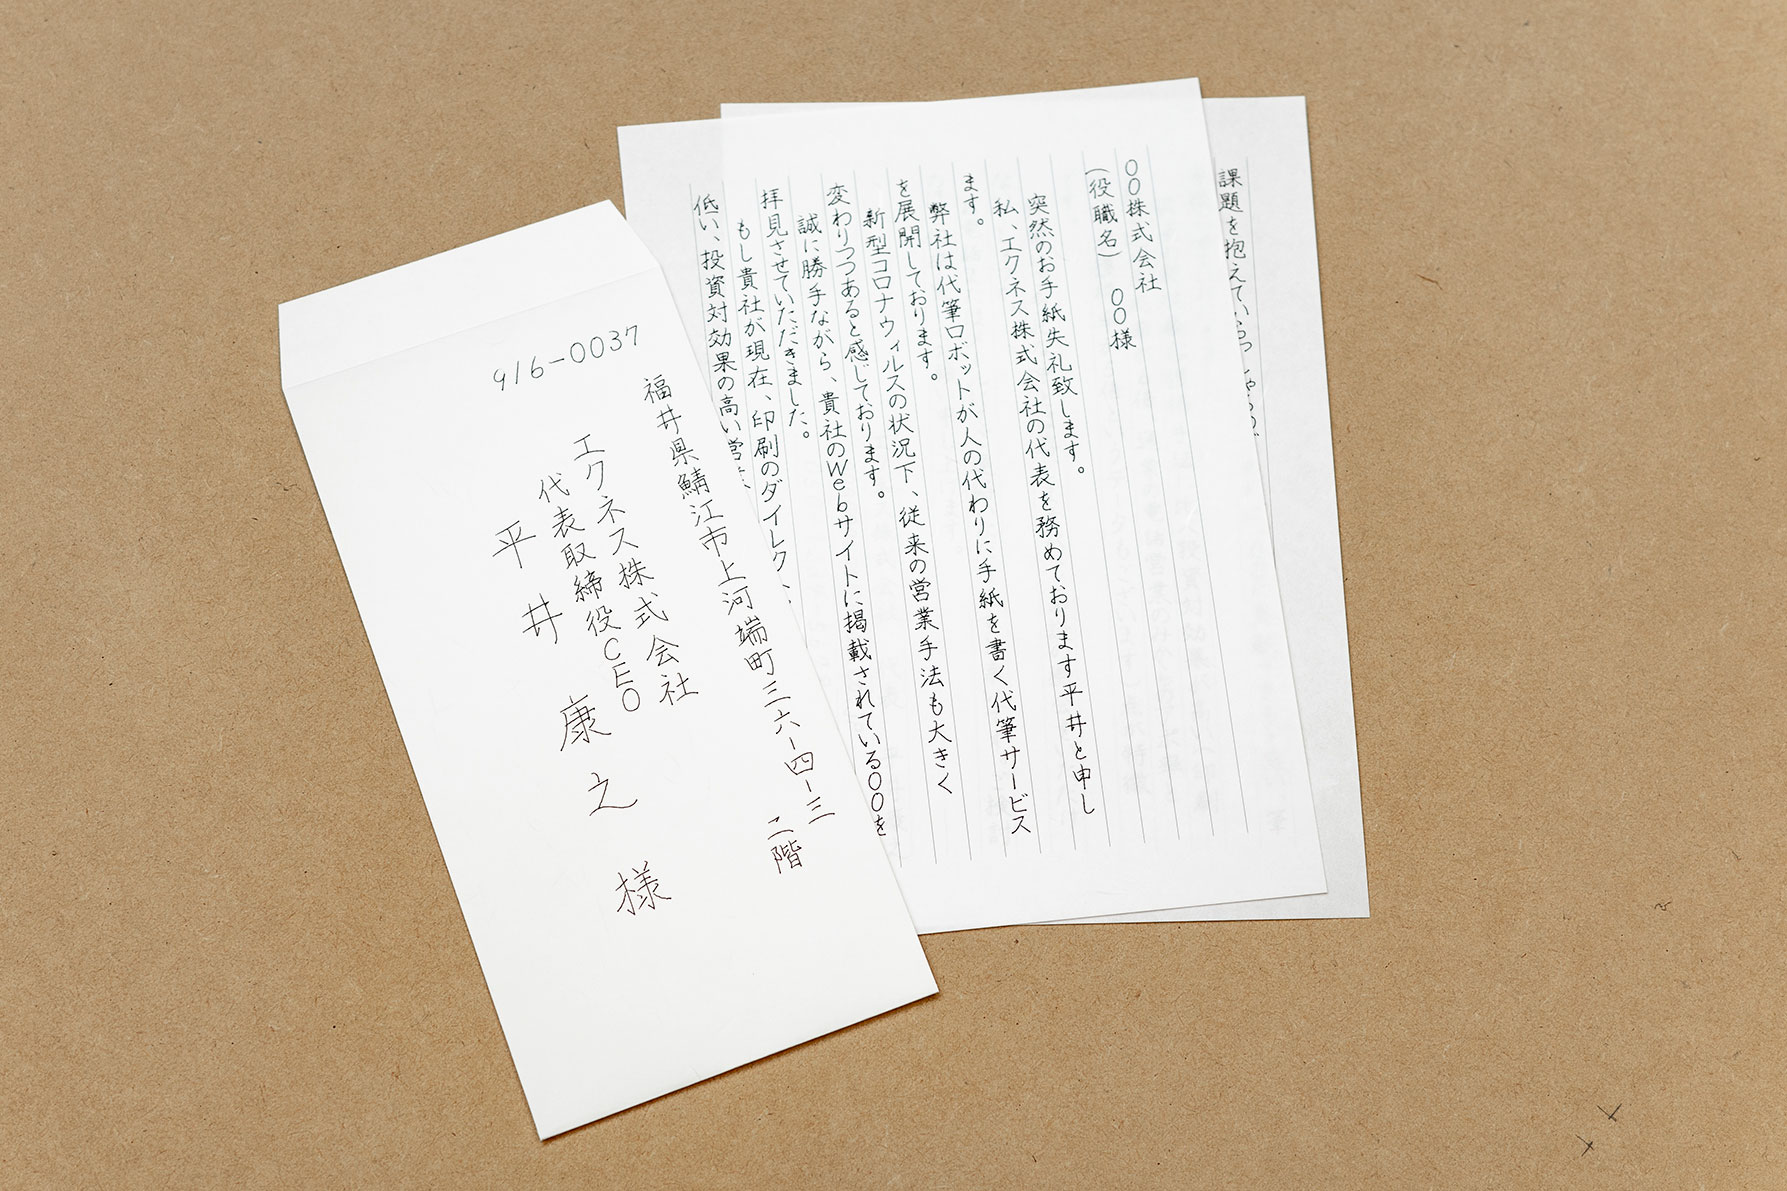 916-0037
福井県鯖江市上河端町三六-四-三
二階
エクネス株式会社
代表取締役CEO
平井 康之 様
〇〇株式会社
(役職名) 〇〇様
突然のお手紙失礼致します。
私、エクネス株式会社の代表を務めております平井と申し
ます。
弊社は代筆ロボットが人の代わりに手紙を書く代筆サービス
を展開しております。
新型コロナウィルスの状況下、従来の営業手法も大きく
変わりつつあると感じております。
誠に勝手ながら、貴社のWebサイトに掲載されている〇〇を
拝見させていただきました。
もし貴社が現在、印刷のダイレク
低い、投資対効果の高い営
課題を抱えていらっしゃるの